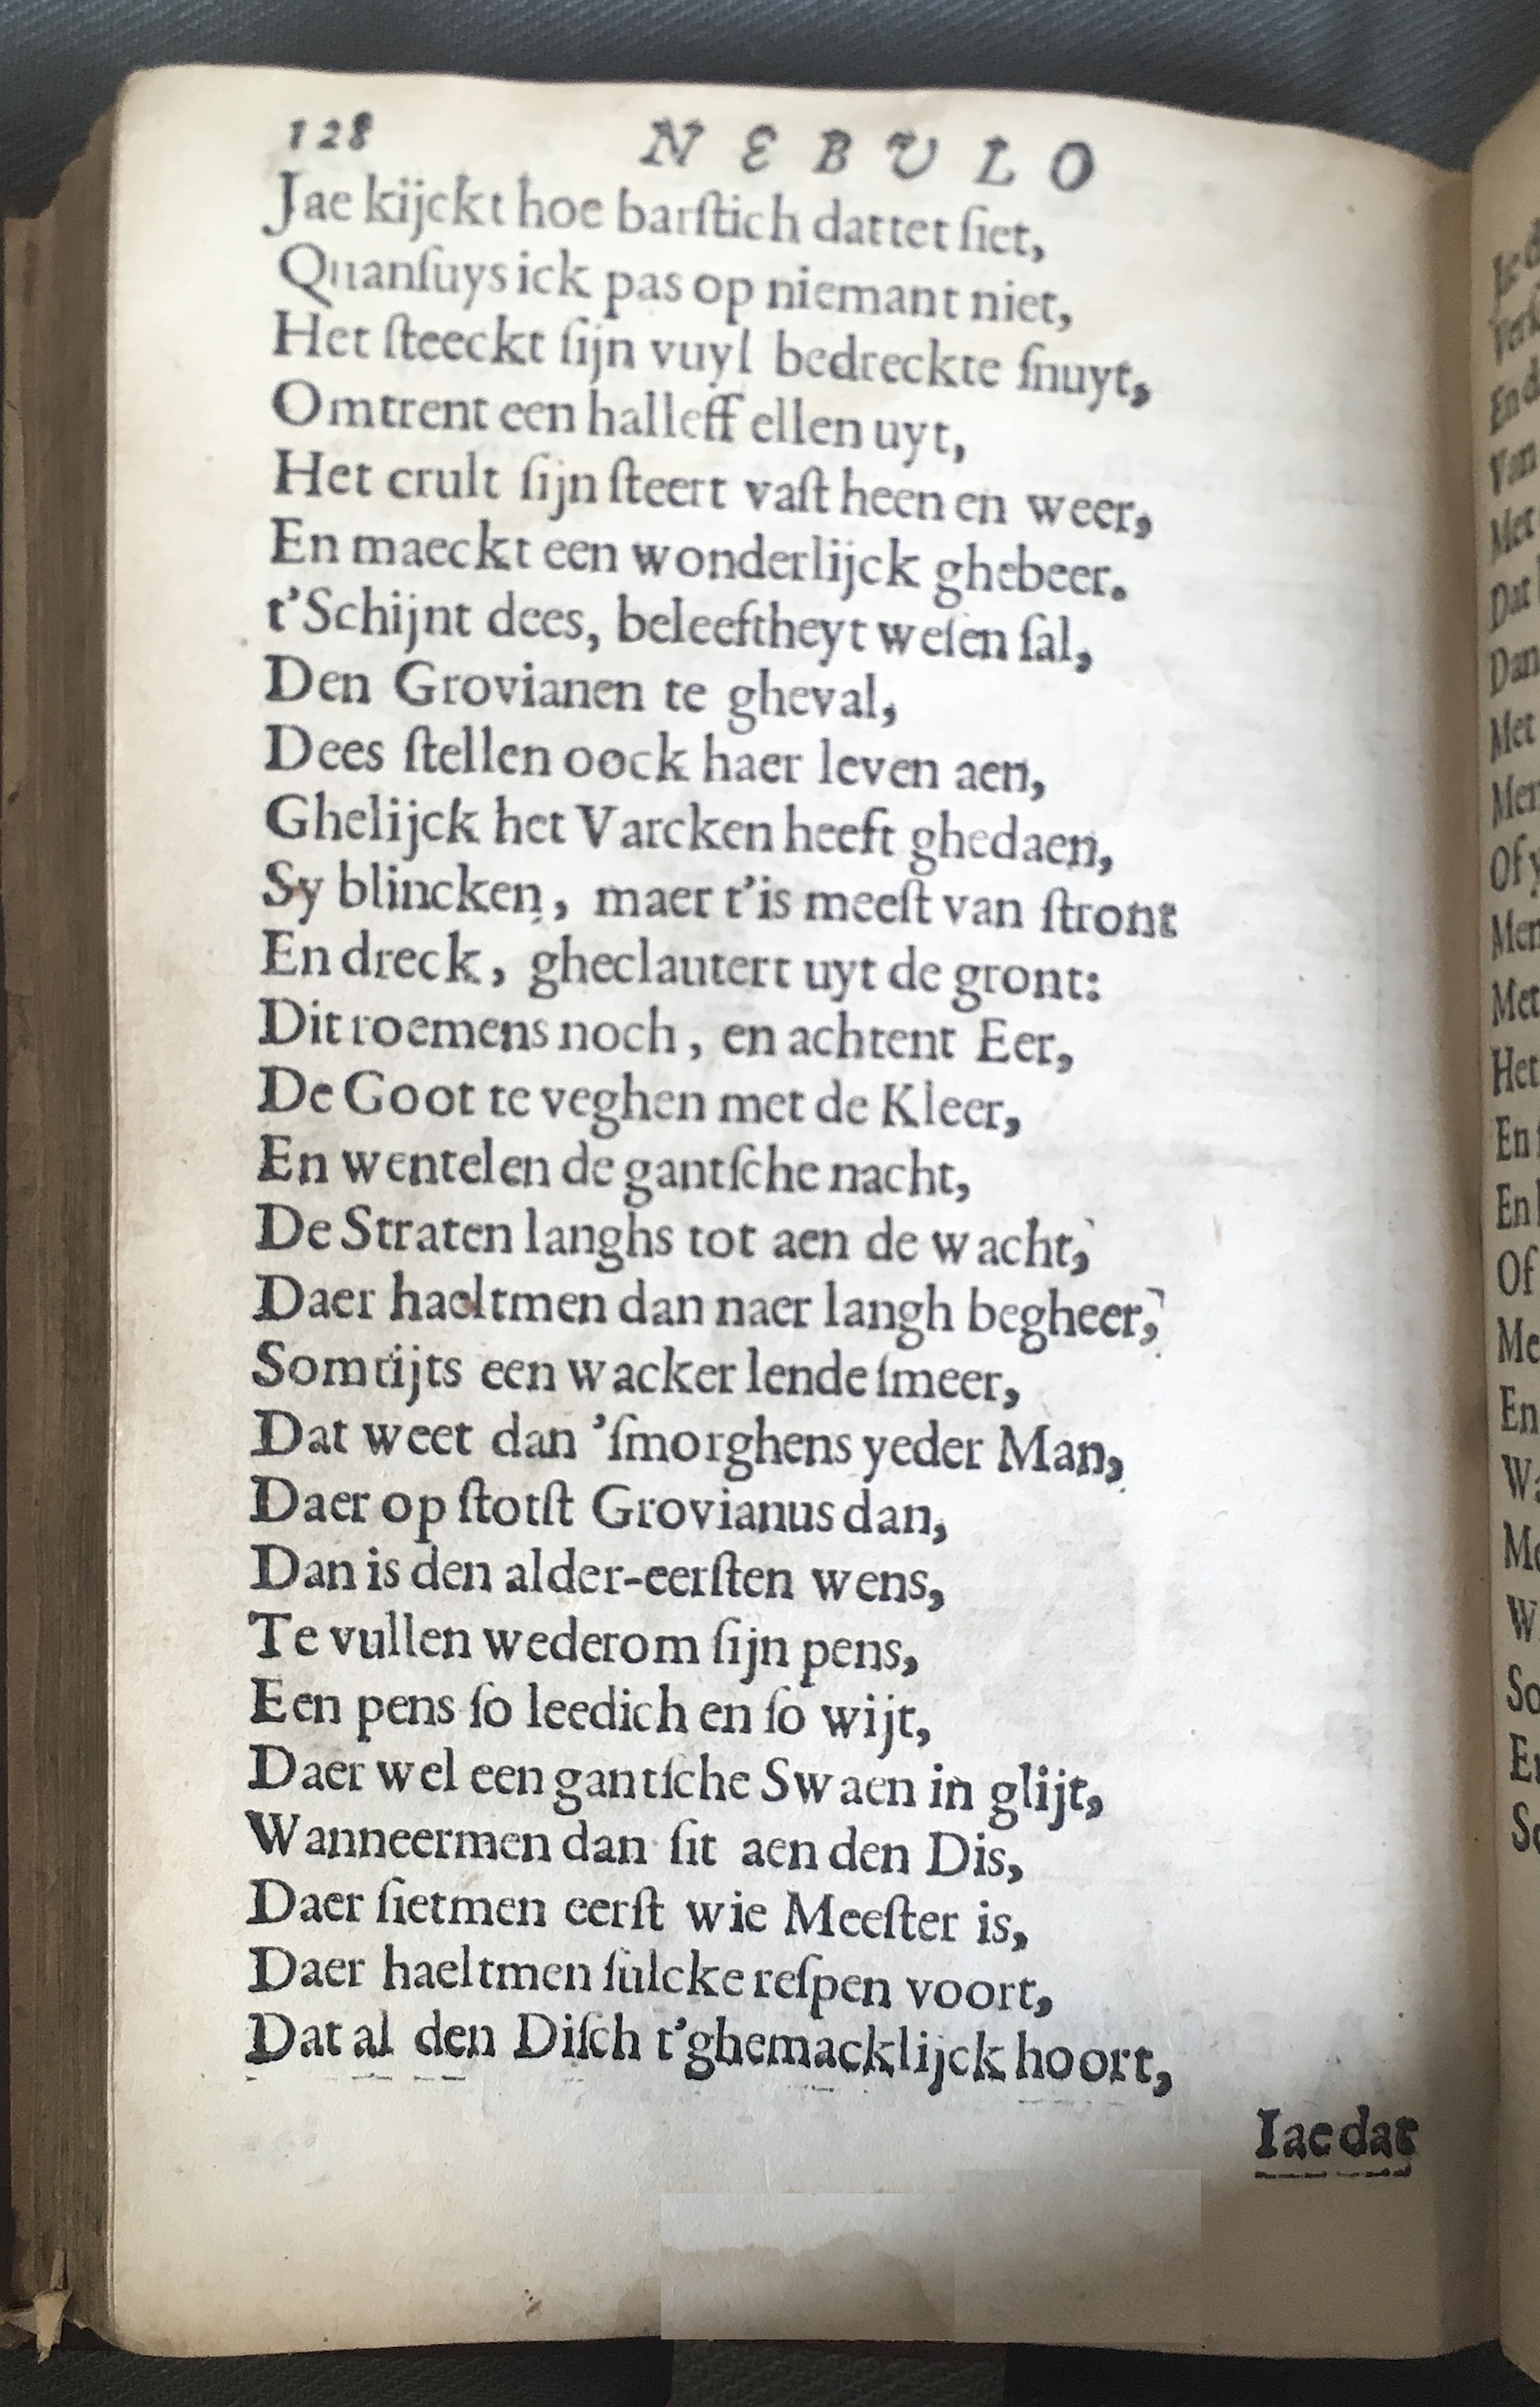 128 NEBULO
Jae kijckt hoe barſtich dattet ſiet,
Quanſuys ick pas op niemant niet,
Het ſteeckt ſijn vuyl bedreckte ſnuyt,
Omtrent een halleff ellen uyt,
Het crult ſijn ſteert vaſt heen en weer,
En maeckt een wonderlijck ghebeer.
t'Schijnt dees, beleeftheyt weſen ſal,
Den Grovianen te gheval,
Dees ſtellen oock haer leven aen,
Ghelijck het Varcken heeft ghedaen,
Sy blincken, maer t'is meeſt van ſtront
En dreck, gheclautert uyt de gront:
Dit roemens noch, en achtent Eer,
De Goot te veghen met de Kleer,
En wentelen de gantſche nacht,
De Straten langhs tot aen de wacht,
Daer haeltmen dan naer langh begheer,
Somtijts een wacker lende ſmeer,
Dat weet dan 'ſmorghens yeder Man,
Daer op ſtotſt Grovianus dan,
Dan is den alder-eerſten wens,
Te vullen wederom ſijn pens,
Een pens ſo leedich en ſo wijt,
Daer wel een gantſche Swaen in glijt,
Wanneermen dan ſit aen den Dis,
Daer ſietmen eerſt wie Meeſter is,
Daer haeltmen ſulcke reſpen voort,
Dat al den Diſch t'ghemacklijck hoort,
Iae dat